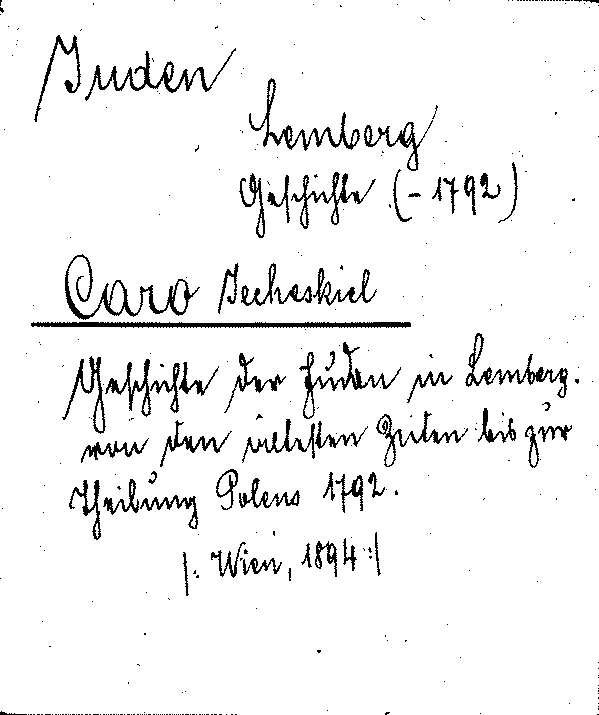 Juden
Lemberg
Geschichte (- 1792)
Caro Jecheskiel
Geschichte der Juden in Lemberg.
von den ältesten Zeiten bis zur
Theilung Polens 1792.
|: Wien, 1894 :|